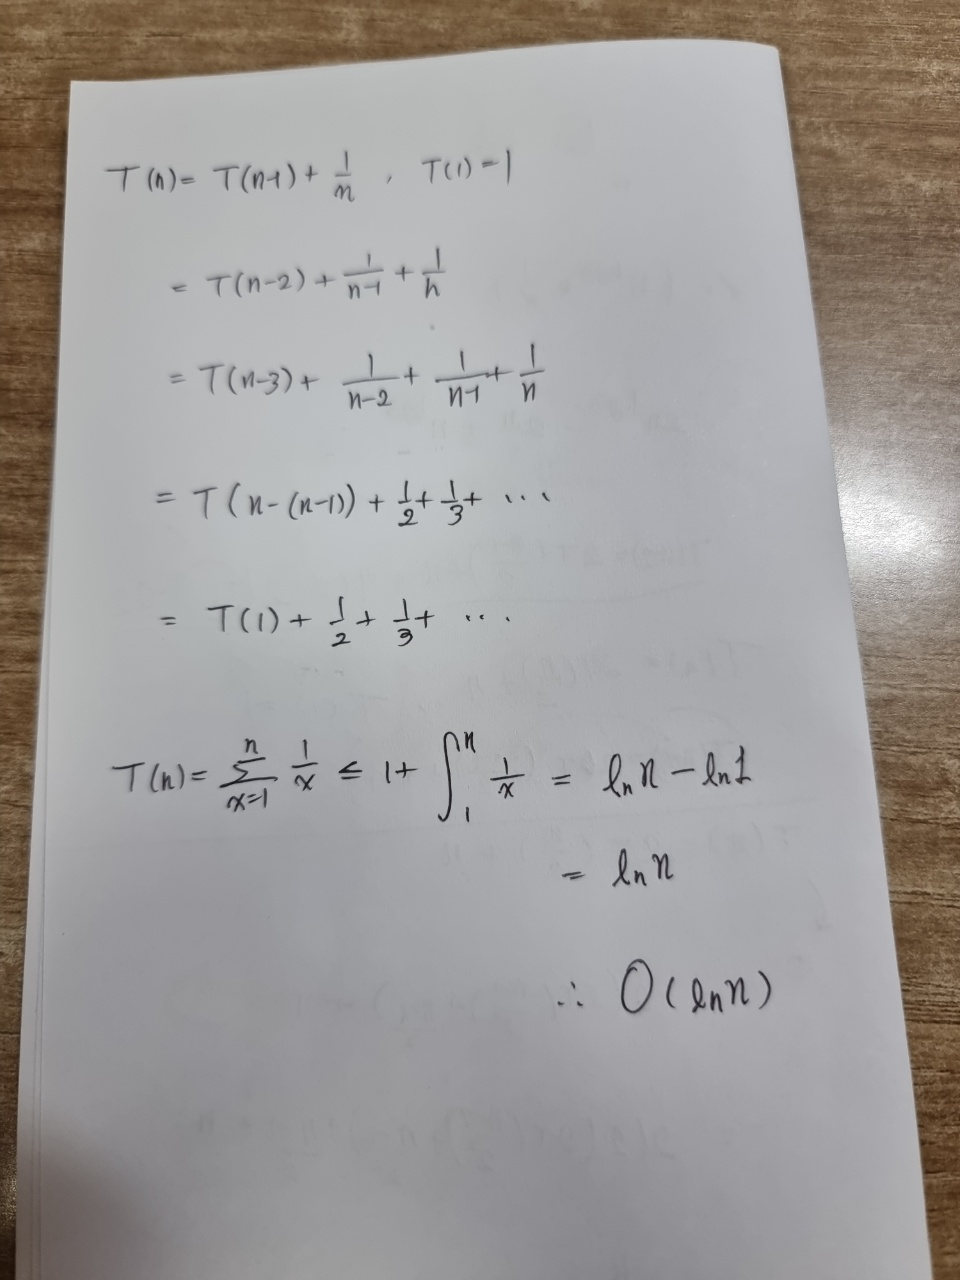 T(n) = T(n-1) + 1/n , T(1) = 1
= T(n-2) + 1/(n-1) + 1/n
= T(n-3) + 1/(n-2) + 1/(n-1) + 1/n
= T(n-(n-1)) + 1/2 + 1/3 + ...
= T(1) + 1/2 + 1/3 + ...
T(n) = ∑_{x=1}^{n} 1/x ≤ 1 + ∫_1^n 1/x = ln n - ln 1
= ln n
∴ O(ln n)